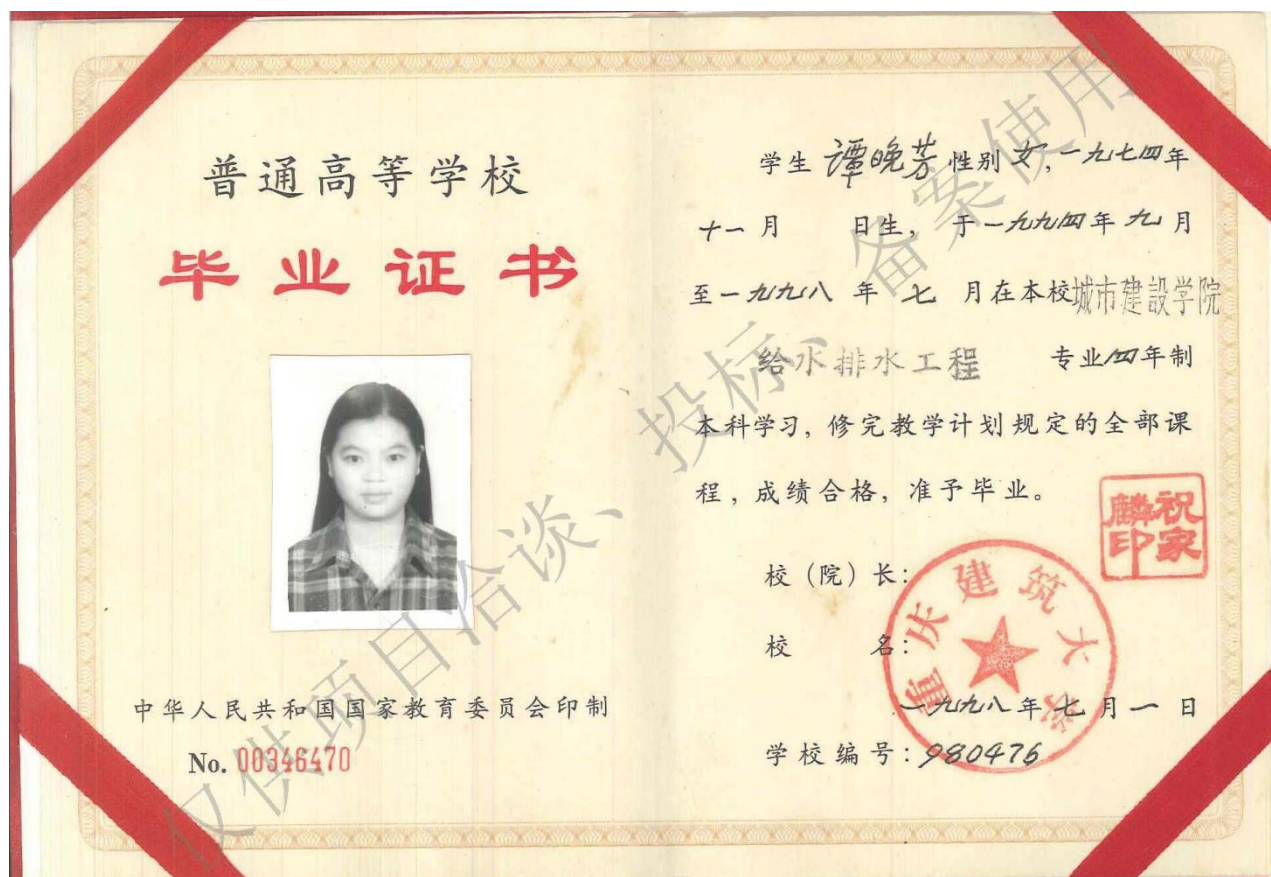 普通高等学校
毕业证书
中华人民共和国国家教育委员会印制
No. 00346470
学生 谭晚芳 性别 女, 一九七四年
十一月 日生, 于一九九四年九月
至一九九八年七月在本校城市建設学院
给水排水工程 专业四年制
本科学习, 修完教学计划规定的全部课
程, 成绩合格, 准予毕业。
祝家麟印
校(院)长:
校 名:
重庆建筑大学
一九九八年七月一日
学校编号: 980476
仅供项目洽谈、投标、备案使用